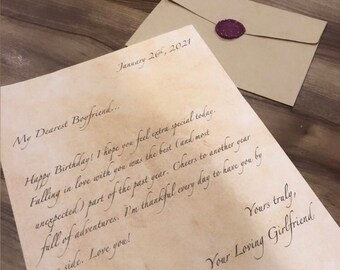 January 26th, 2021
My Dearest Boyfriend...
Happy Birthday! I hope you feel extra special today.
Falling in love with you was the best (and most
unexpected) part of the past year. Cheers to another year
full of adventures. I'm thankful every day to have you by
side. Love you!
Yours truly,
Your Loving Girlfriend